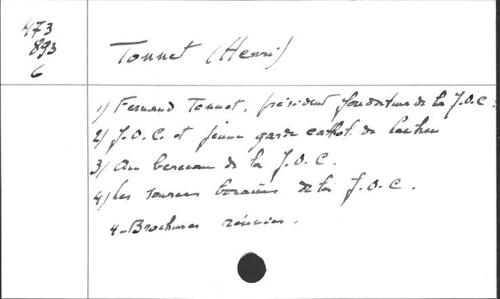 473
893
6
Tonnet (Henri)
1) Fernand Tonnet, président fondateur de la J.O.C.
2) J.O.C. et jeune garde cathol. de Laeken
3) Au berceau de la J.O.C.
4) Les sources de la J.O.C.
4 Brochures réunies.